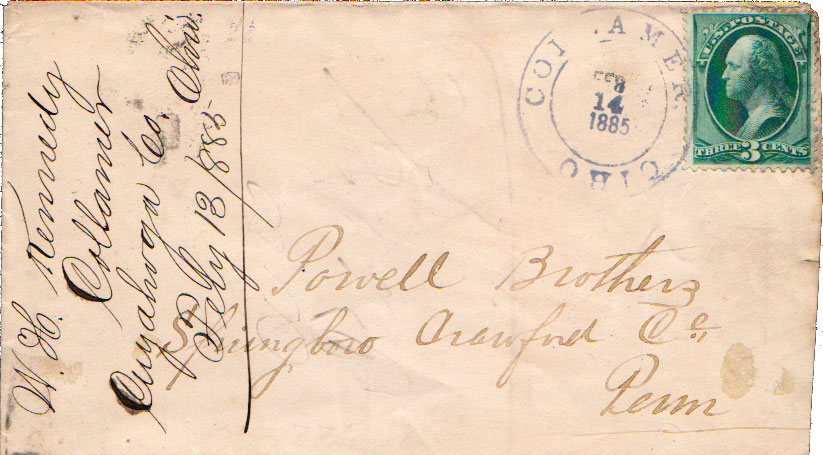 W. H. Kennedy
Collamer
Cuyahoga Co, Ohio
Feby 13/885
COLLAMER
FEB
14
1885
OIHO
U.S. POSTAGE
THREE 3 CENTS
Powell Brothers
Springboro Crawford Co
Penn